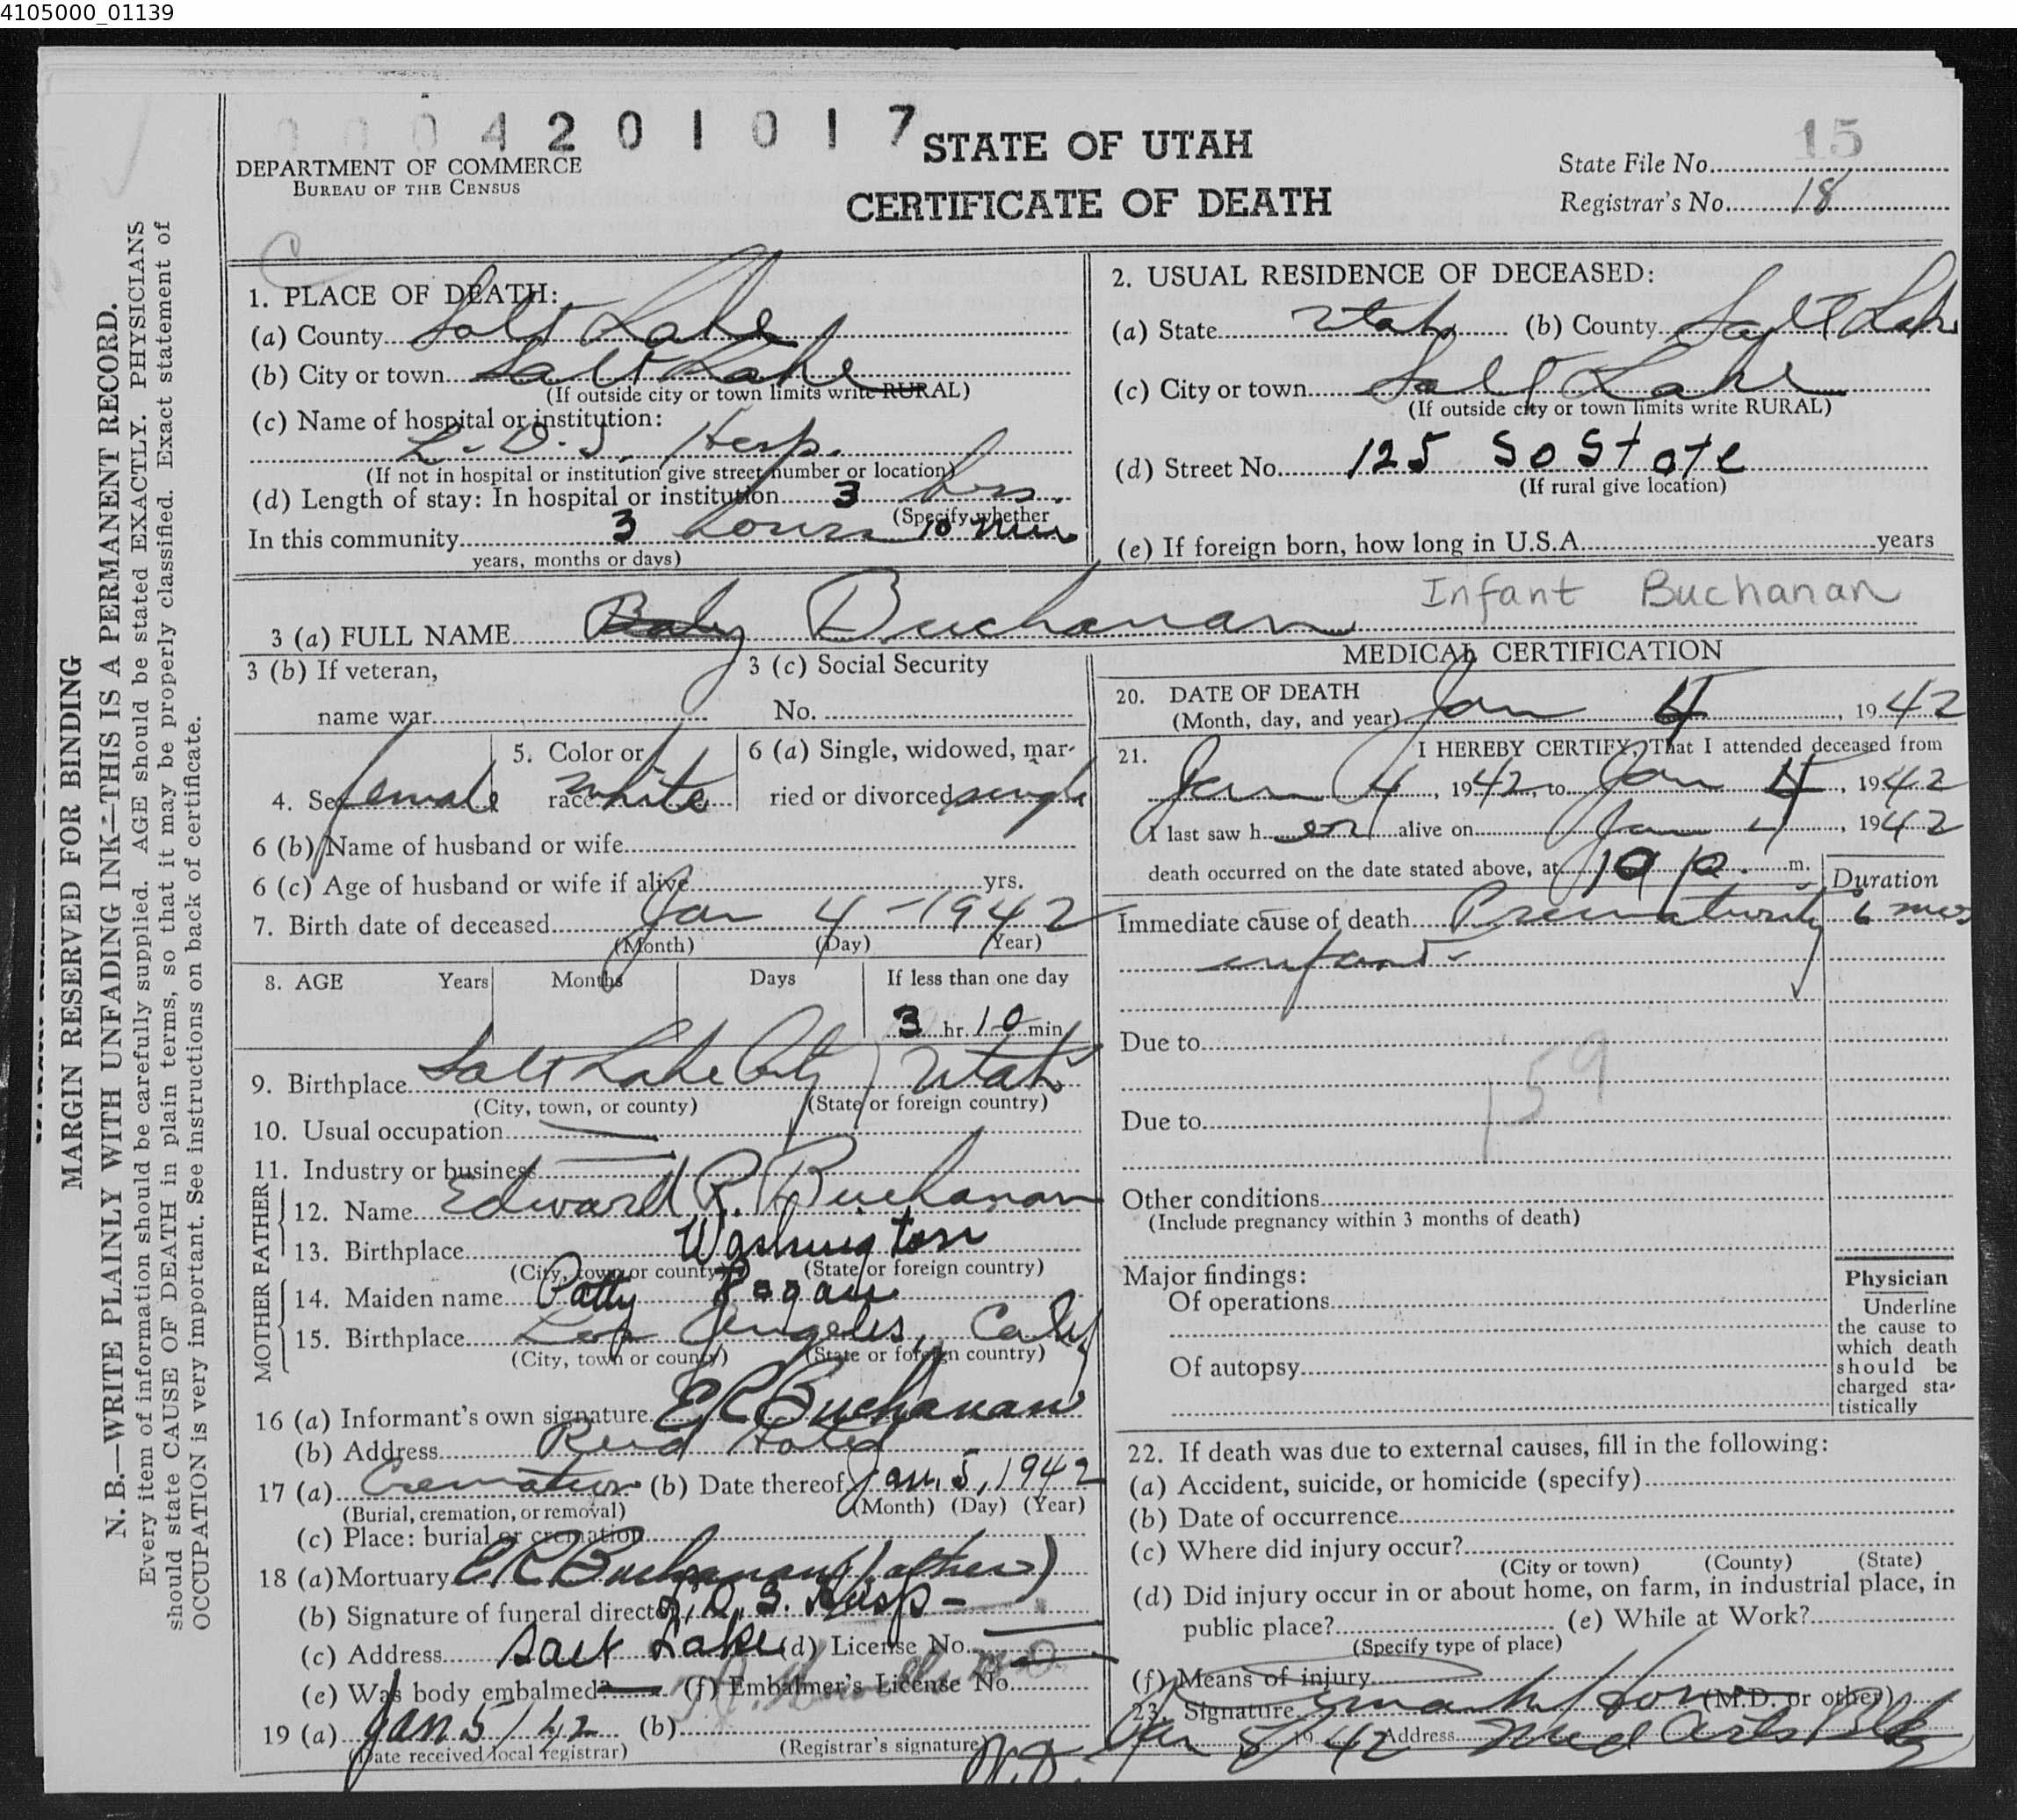 4105000_01139
0004201017
DEPARTMENT OF COMMERCE
BUREAU OF THE CENSUS
STATE OF UTAH
CERTIFICATE OF DEATH
State File No. 15
Registrar's No. 18
MARGIN RESERVED FOR BINDING
N. B.—WRITE PLAINLY WITH UNFADING INK—THIS IS A PERMANENT RECORD.
Every item of information should be carefully supplied. AGE should be stated EXACTLY. PHYSICIANS
should state CAUSE OF DEATH in plain terms, so that it may be properly classified. Exact statement of
OCCUPATION is very important. See instructions on back of certificate.
C
1. PLACE OF DEATH:
(a) County Salt Lake
(b) City or town Salt Lake
(If outside city or town limits write RURAL)
(c) Name of hospital or institution:
L. D. S. Hosp.
(If not in hospital or institution give street number or location)
(d) Length of stay: In hospital or institution 3 hrs.
(Specify whether
In this community 3 hours 10 min
years, months or days)
2. USUAL RESIDENCE OF DECEASED:
(a) State Utah (b) County Salt Lake
(c) City or town Salt Lake
(If outside city or town limits write RURAL)
(d) Street No. 125 So State
(If rural give location)
(e) If foreign born, how long in U.S.A. years
3 (a) FULL NAME Baby Buchanan Infant Buchanan
3 (b) If veteran,
name war
3 (c) Social Security
No.
4. Sex female
5. Color or
race white
6 (a) Single, widowed, mar-
ried or divorced single
6 (b) Name of husband or wife
6 (c) Age of husband or wife if alive yrs.
7. Birth date of deceased Jan 4 - 1942
(Month) (Day) (Year)
8. AGE Years Months Days If less than one day
3 hr. 10 min
9. Birthplace Salt Lake City, Utah
(City, town, or county) (State or foreign country)
10. Usual occupation
11. Industry or business
FATHER
12. Name Edward R. Buchanan
13. Birthplace Washington
(City, town or county) (State or foreign country)
MOTHER
14. Maiden name Patty
15. Birthplace Los Angeles, Calif
(City, town or county) (State or foreign country)
16 (a) Informant's own signature E R Buchanan
(b) Address Hotel
17 (a) Cremation (b) Date thereof Jan. 5, 1942
(Burial, cremation, or removal) (Month) (Day) (Year)
(c) Place: burial or cremation
18 (a) Mortuary E R Buchanan (father)
(b) Signature of funeral director L. D. S. Hosp -
(c) Address Salt Lake (d) License No.
(e) Was body embalmed? (f) Embalmer's License No.
19 (a) Jan 5/42 (b)
(Date received local registrar) (Registrar's signature)
MEDICAL CERTIFICATION
20. DATE OF DEATH
(Month, day, and year) Jan 4, 1942
21. I HEREBY CERTIFY, That I attended deceased from
Jan 4, 1942, to Jan 4, 1942
I last saw her alive on Jan 4, 1942
death occurred on the date stated above, at 10 p. m.
Duration
Immediate cause of death Prematurity 6 mos
infant -
Due to
159
Due to
Other conditions
(Include pregnancy within 3 months of death)
Major findings:
Of operations
Of autopsy
Physician
Underline
the cause to
which death
should be
charged sta-
tistically
22. If death was due to external causes, fill in the following:
(a) Accident, suicide, or homicide (specify)
(b) Date of occurrence
(c) Where did injury occur?
(City or town) (County) (State)
(d) Did injury occur in or about home, on farm, in industrial place, in
public place? (e) While at Work?
(Specify type of place)
(f) Means of injury
23. Signature (M.D. or other)
Jan 5/1942 Address Med Arts Bldg